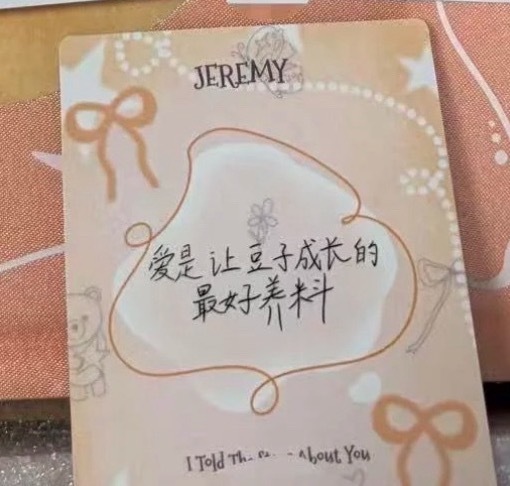 JEREMY
爱是让豆子成长的
最好养料
I Told About You